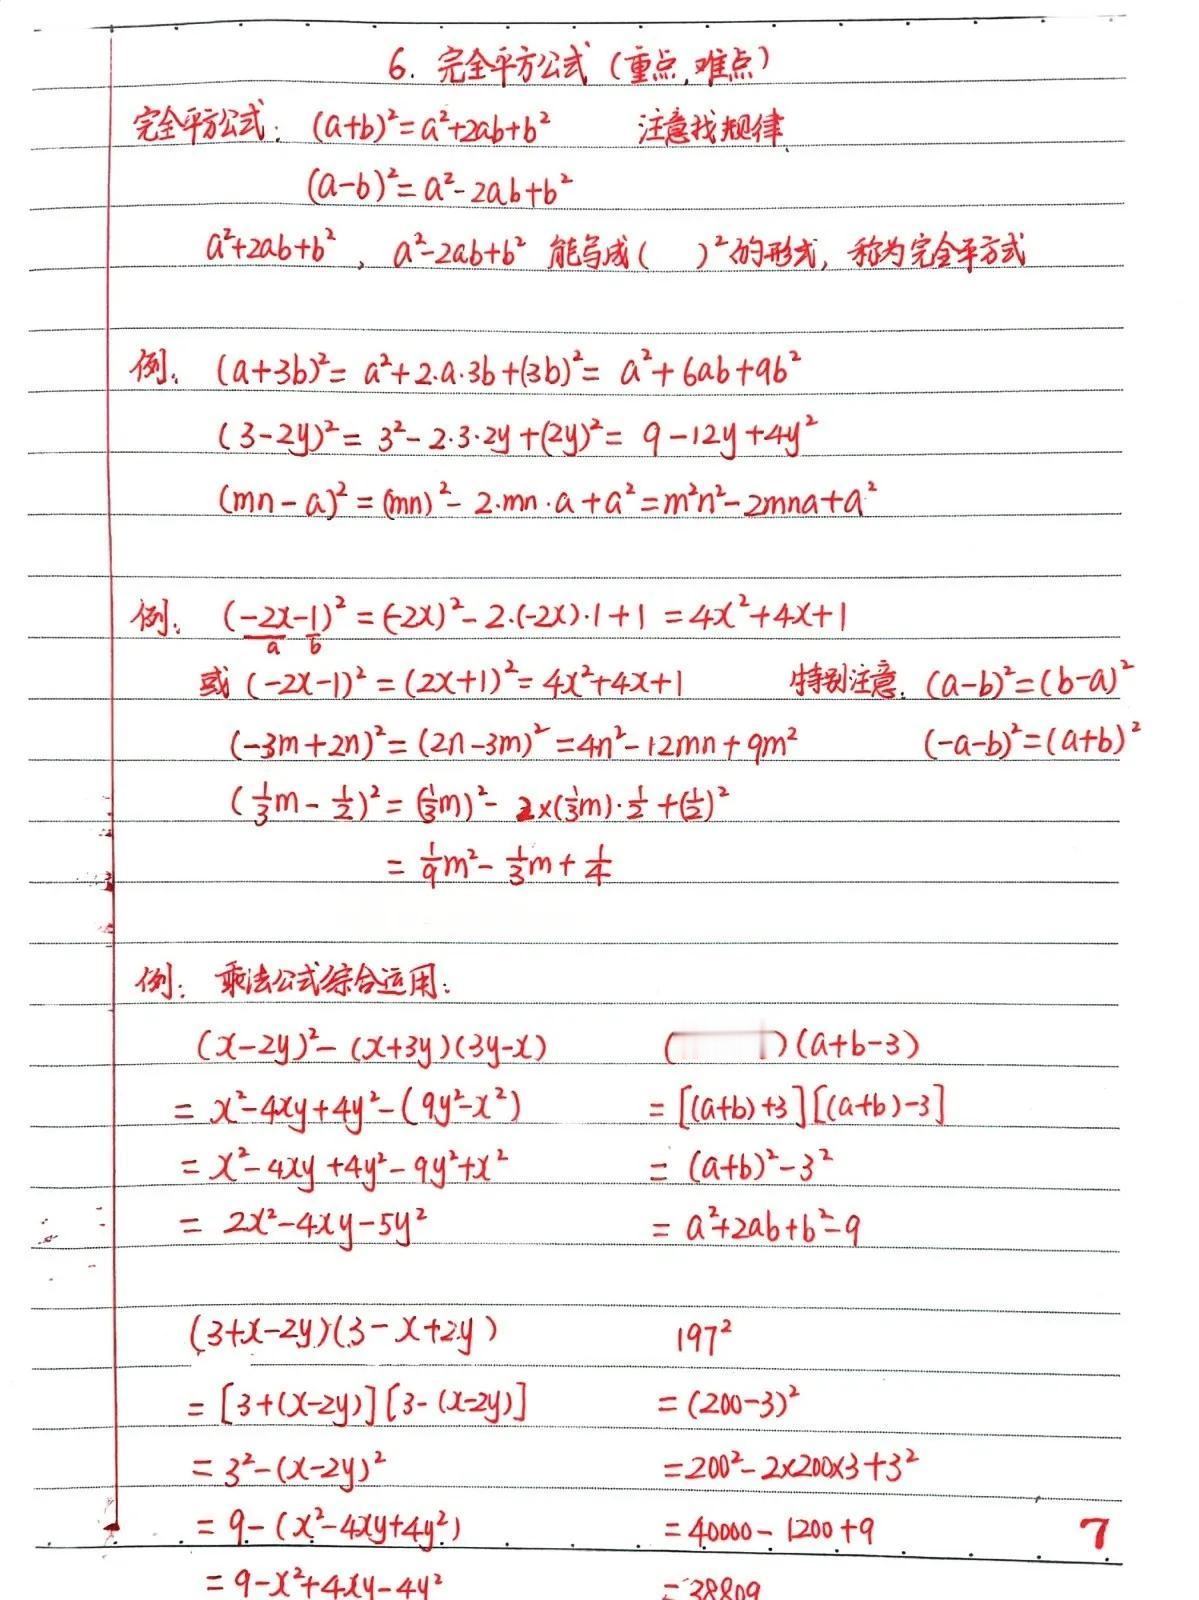 6. 完全平方公式（重点,难点）
完全平方公式: (a+b)²=a²+2ab+b² 注意找规律.
(a-b)²=a²-2ab+b²
a²+2ab+b², a²-2ab+b² 能写成( )²的形式, 称为完全平方式
例. (a+3b)²= a²+2·a·3b+(3b)²= a²+6ab+9b²
(3-2y)²= 3²-2·3·2y+(2y)²= 9-12y+4y²
(mn-a)²=(mn)²-2·mn·a+a²=m²n²-2mna+a²
例. (-2x-1)²=(-2x)²-2·(-2x)·1+1=4x²+4x+1
a b
或 (-2x-1)²=(2x+1)²=4x²+4x+1 特别注意. (a-b)²=(b-a)²
(-3m+2n)²=(2n-3m)²=4n²-12mn+9m² (-a-b)²=(a+b)²
(1/3m-1/2)²=(1/3m)²-2×(1/3m)·1/2+(1/2)²
=1/9m²-1/3m+1/4
例: 乘法公式综合运用:
(x-2y)²-(x+3y)(3y-x) ( )(a+b-3)
= x²-4xy+4y²-(9y²-x²) =[(a+b)+3][(a+b)-3]
= x²-4xy+4y²-9y²+x² = (a+b)²-3²
= 2x²-4xy-5y² = a²+2ab+b²-9
(3+x-2y)(3-x+2y) 197²
=[3+(x-2y)][3-(x-2y)] =(200-3)²
=3²-(x-2y)² =200²-2×200×3+3²
=9-(x²-4xy+4y²) =40000-1200+9
=9-x²+4xy-4y² =38809
7